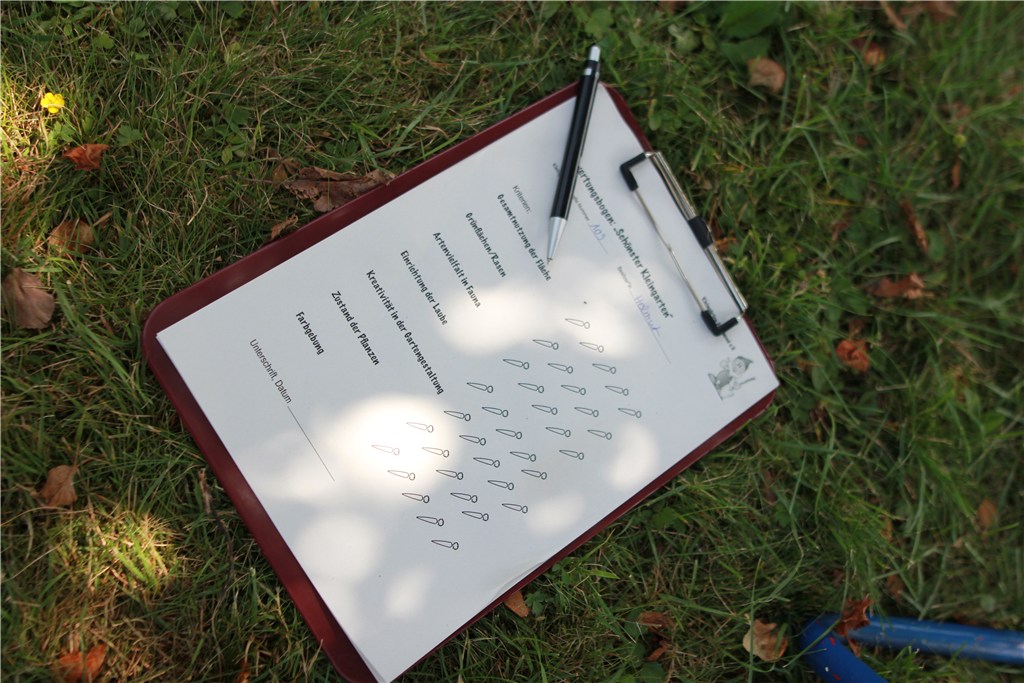 "Schönster Kleingarten"
103
Helmut
Kriterien:
Gesamtnutzung der Fläche
Grünflächen/Rasen
Artenvielfalt in Fauna
Einrichtung der Laube
Kreativität in der Gartengestaltung
Zustand der Pflanzen
Farbgebung
Unterschrift, Datum